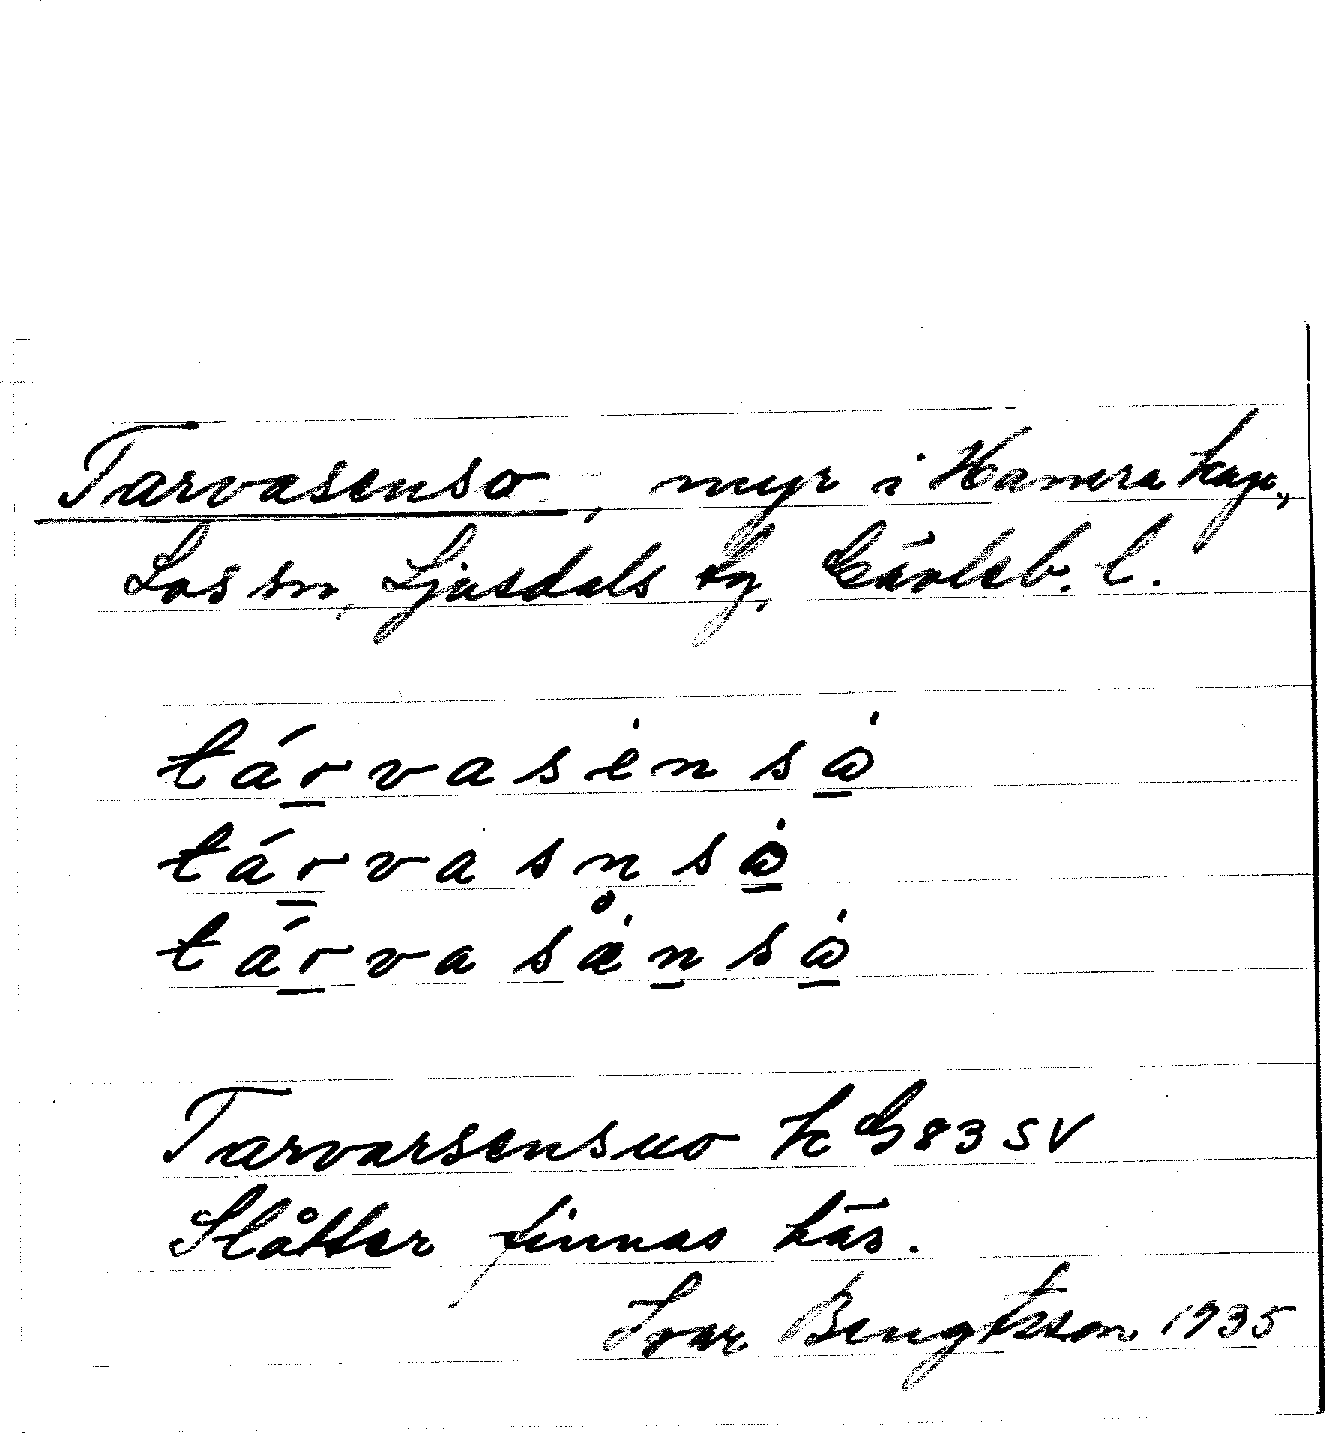 Tarvasenso, myr i Hamra kap.,
Los sn, Ljusdals tg, Gävleb. l.
tár̲vasėnsȧ̲
tár̲vasnsȧ̲
tár̲vasån̲sȧ̲
Tarvarsensuo k G 83 SV
Slåtter finnas här.
Ivar Bengtsson 1935